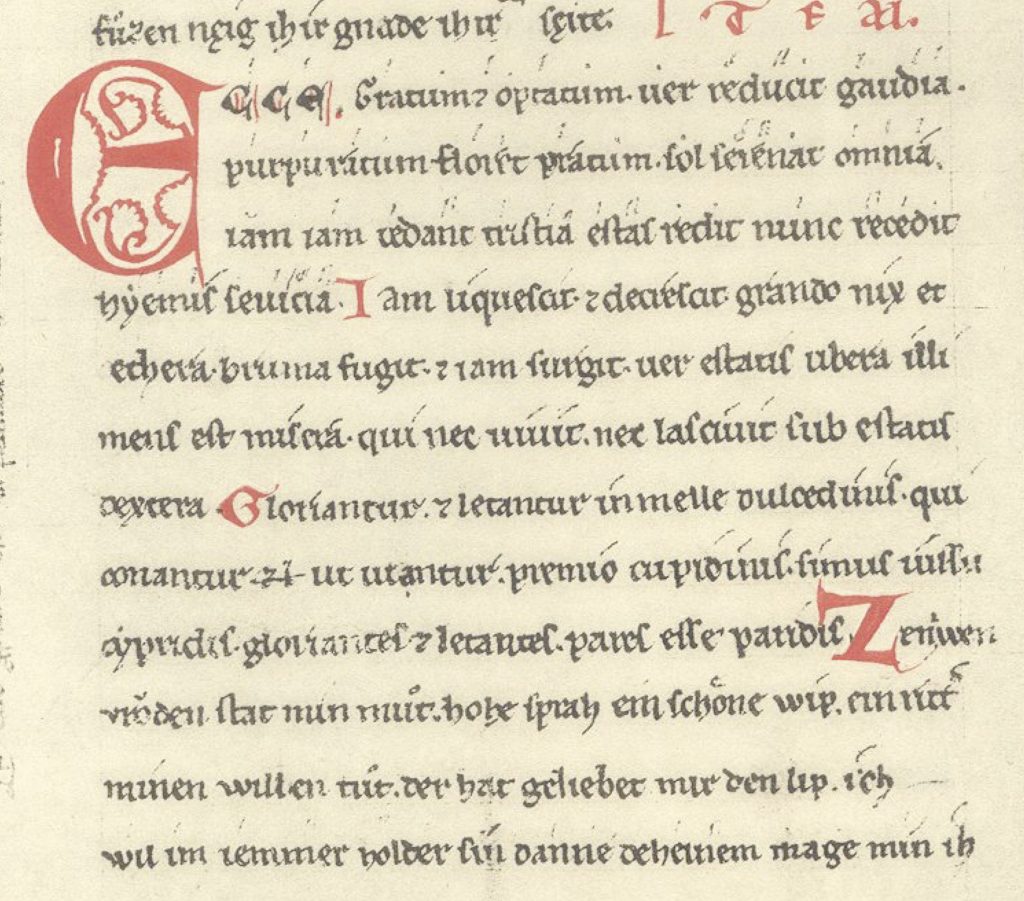 fůzen neig ih ir gnade ih ir seite. ITEM.
ECCE. Gratum ⁊ optatum. uer reducit gaudia.
purpuratum floret pratum. sol serenat omnia.
iam iam cedant tristia estas redit nunc recedit
hyemis seuicia. Iam liquescit. ⁊ decrescit. grando nix et
cethera. bruma fugit. ⁊ iam surgit. uer estatis ubera illi
mens est misera. qui nec uiuit. nec lasciuit sub estatis
dextera Gloriantur. ⁊ letantur in melle dulcedinis. qui
conantur. ut utantur. premio cupidinis. simus iussu
cypridis. gloriantes ⁊ letantes. pares esse paridis Ze niwen
vrŏden stat min můt. hohe sprah ein schŏne wip. ein ritt
minen willen tůt. der hat geliebet mir den lip. ich
wil im iemmer holder sin danne deheinem mage min ih